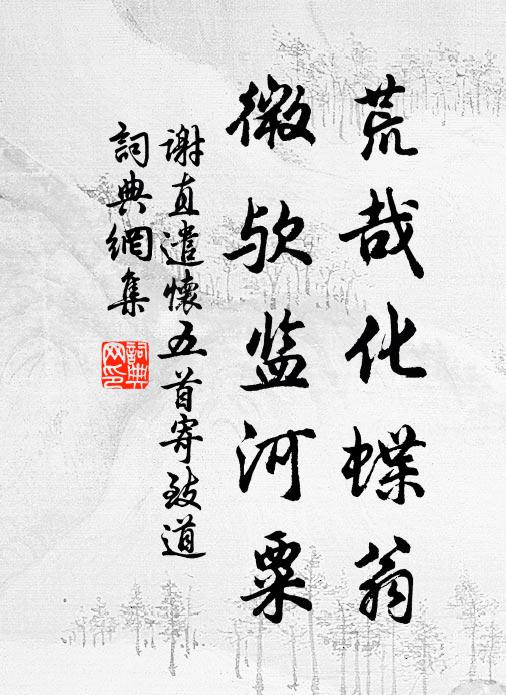 荒哉化蝶翁
微欤监河粟
谢直遣懷五首寄致道
詞典網集
詞典網印